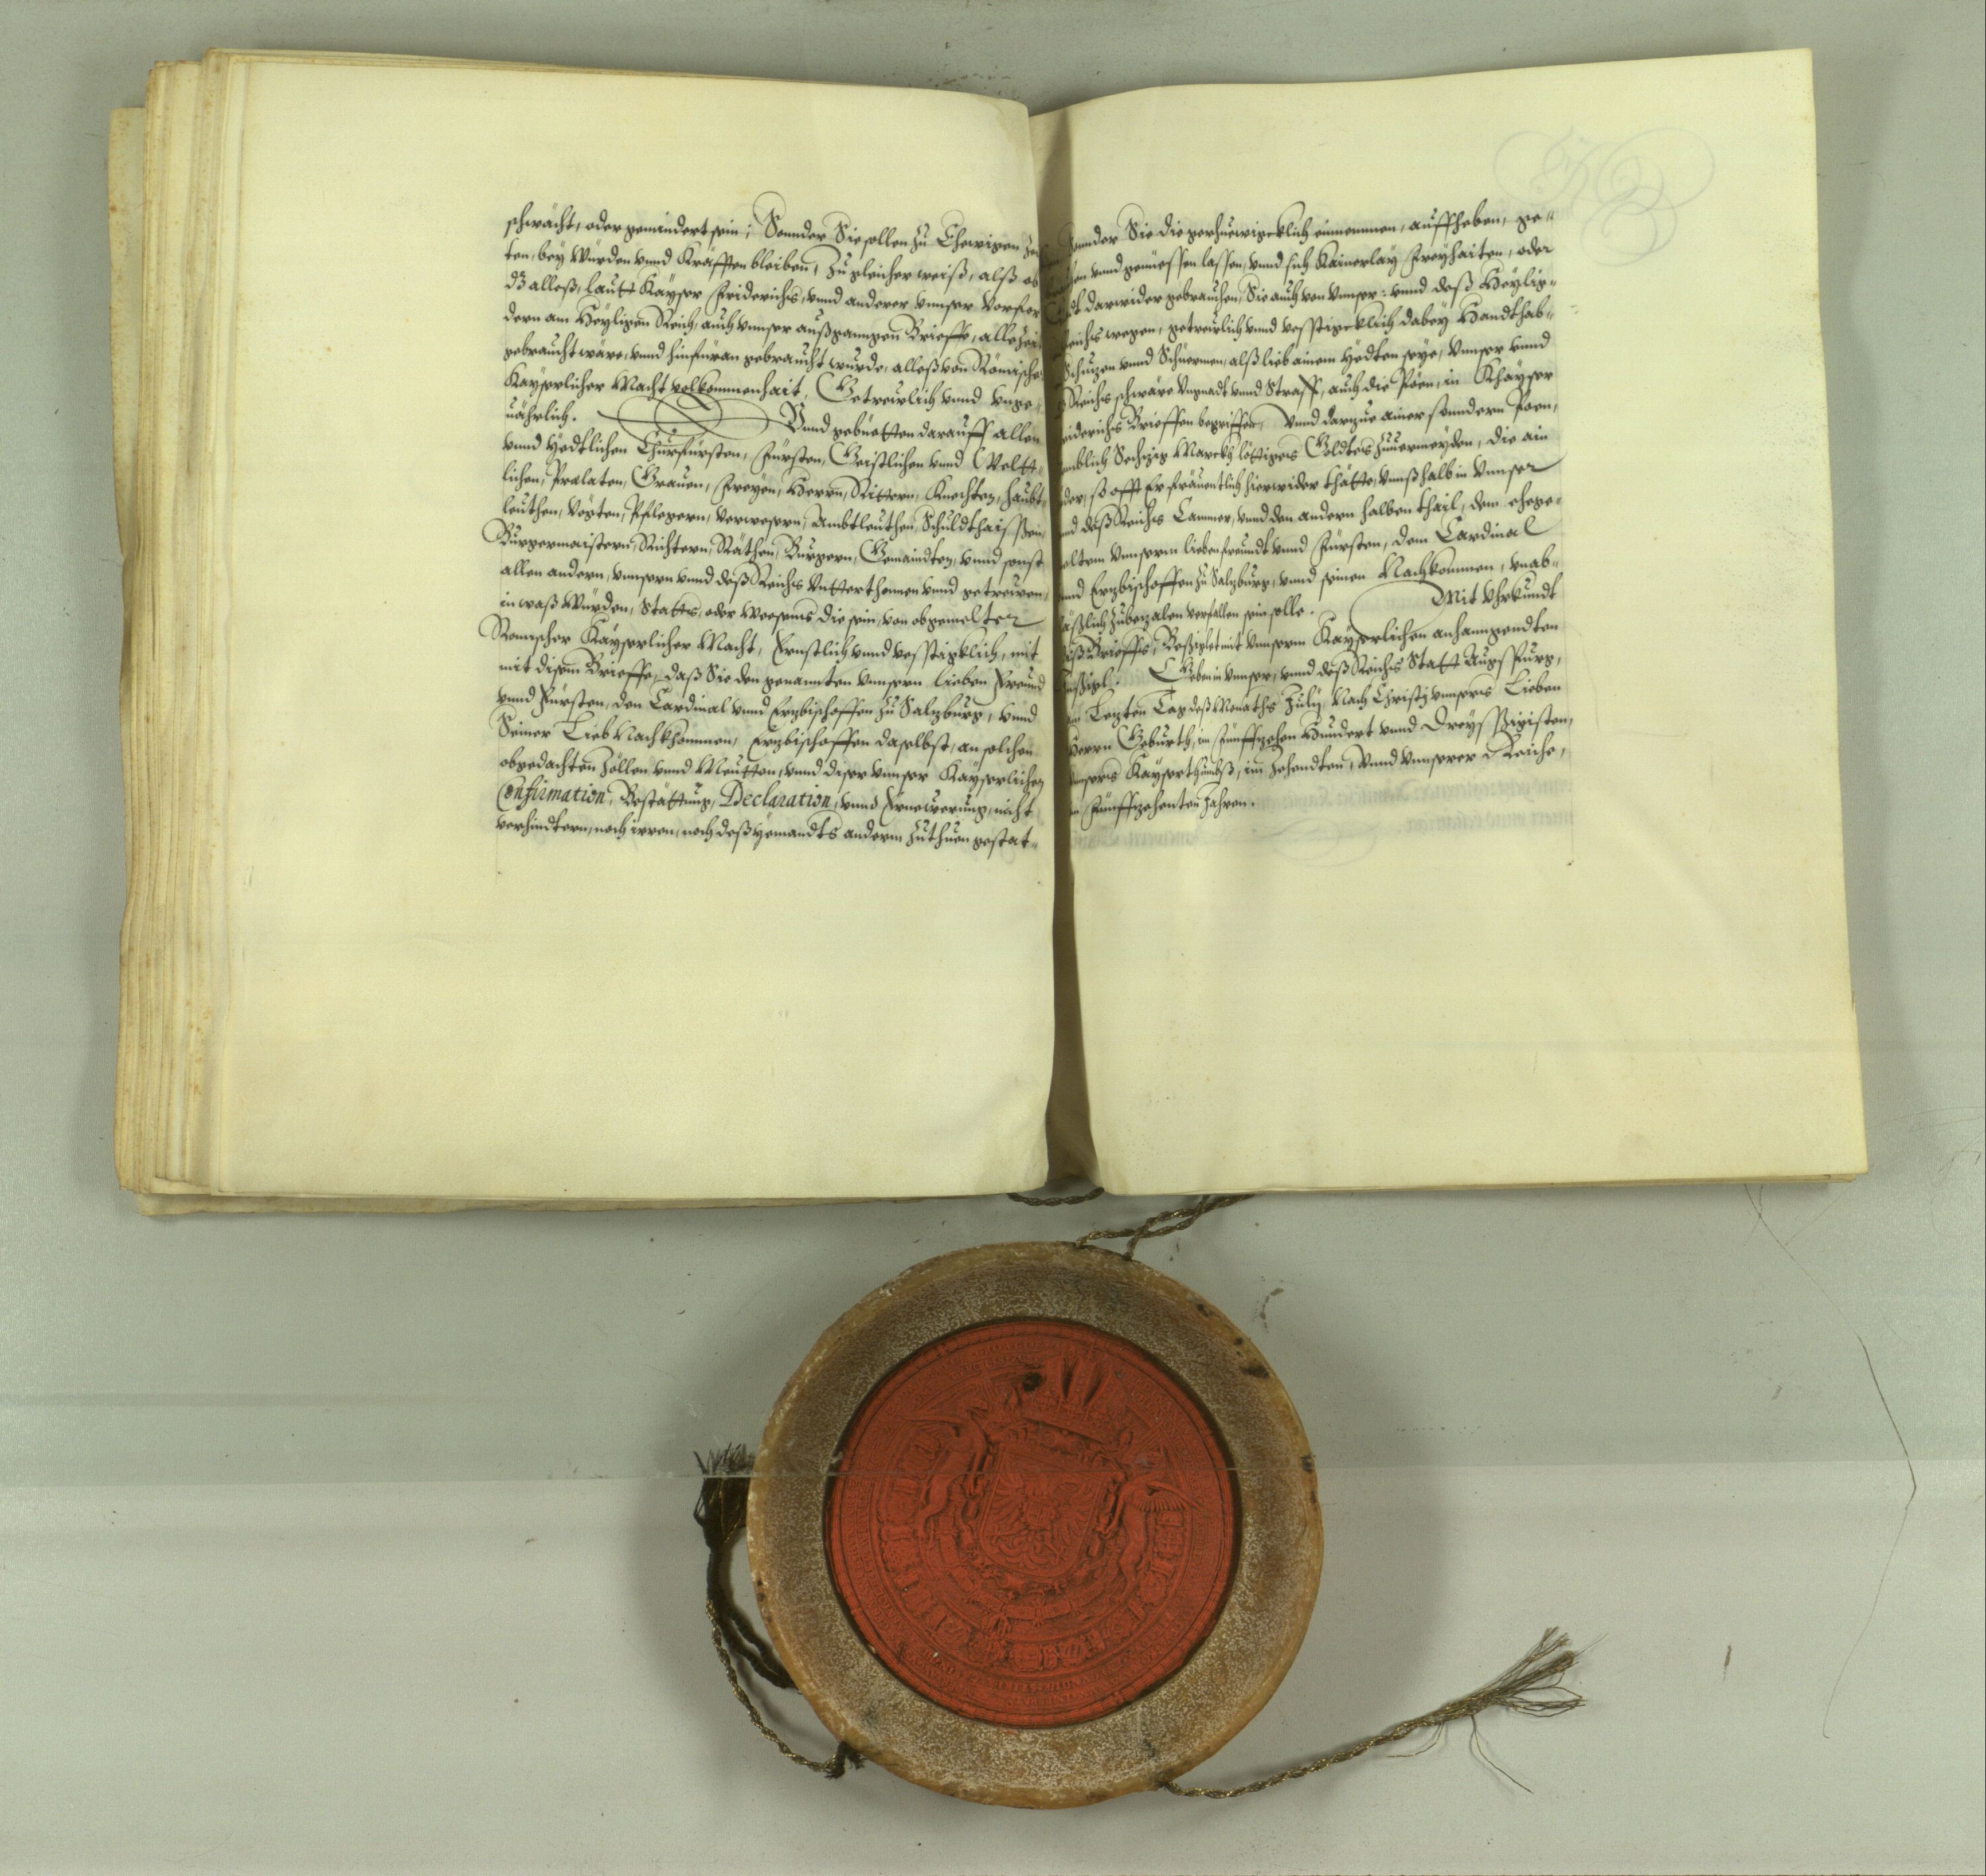 schwächt, oder gemindert sein; Sonnder Sie sollen zu Ehewigen Zei
ten, bey Würden vnnd Kräfften bleiben, Zu gleicher weiß, alß ob
dz alleß, lautt Kayser Friderichs, vnnd anderer vnnser Vorfor
dern am Heyligen Reich, auch vnnser außgangen Brieffe, allezeit
gebraucht wäre, vnnd hinfüran gebraucht wurde, alleß von Römische
Kayserlicher Macht volkommenhait, Getreulich vnnd vnge-
uährlich. Vnnd gebietten darauff allen
vnnd Yedtlichen Churfürsten, Fürsten, Geistlichen vnnd Weltt-
lichen, Prælaten, Grauen, Freyen, Herrn, Rittern, Knechten, Haubt
leuthen, Vögten, Pflegern, Verwesern, Ambtleuthen, Schuldthaissen,
Burgermaistern, Richtern, Räthen, Burgern, Gemaindten, vnnd sonst
allen andern, vnnsern vnnd deß Reichs Vnderthonnen vnnd getreuen,
in waß Würden, Statts, oder Weesens die sein, von obgemelter
Römischer Kayserlicher Macht, Ernstlich vnnd vesstigklich, mit
mit disem Brieffe, daß Sie den genannten vnnsern lieben Freund
vnnd Fürsten, den Cardinal vnnd Erzbischoffen zu Salzburg, vnnd
Seiner Lieb Nachkhommen, Erzbischoffen daselbst, an solchen
obgedachten Zöllen vnnd Meutten, vnnd diser vnnser Kayserlichen
Confirmation, Bestättung, Declaration, vnnd Erneuerung, nicht
verhindern, noch irren, noch deß Yemandts anderm zuthuen gestat-
Sonnder Sie die gerhuewigcklich einnemmen, auffheben, ge-
vnnd geniessen lassen, vnnd sich Kainerlay Freyhaiten, oder
darwider gebrauchen, Sie auch von vnnser: vnnd deß Heylig-
Reichs wegen, getreulich vnnd vesstigcklich dabey Handthab-
Schuzen vnnd Schürmen, alß lieb ainem Yedten seye, Vnnser vnnd
Reichs schwäre Vngnadt vnnd Straff, auch die Pöen, in Khayser
Friderichs Brieffen begriffen, vnnd darzue ainer sonndern Poen,
Nemblich Sechzig Marckh löttiges Goldts zuuermeyden, die ain
Yeder, so offt Er fräuentlich hierwider thätte, Vnnß halb in Vnnser
vnd deß Reichs Cammer, vnnd den andern halben thail, dem ehege-
meltem vnnserm lieben freundt vnnd Fürsten, dem Cardinal
vnnd Erzbischoffen zu Salzburg, vnnd seinen Nachkommen, vnab-
läßlich zubezalen verfallen sein solle. Mit Vhrkundt
diß Brieffs, Besiglet mit vnnserm Kayserlichen anhanngendten
Innsigl. Geben in vnnser, vnnd deß Reichs Statt Augspurg,
am Lezten Tag deß Monaths July, Nach Christi vnnsers Lieben
Herrn Geburth, im Fünffzehen Hundert vnnd Dreyssigisten,
Vnnsers Kayserthumbß, im Zehendten, vnnd vnnserer Reiche,
im Fünffzehenten Jahren.